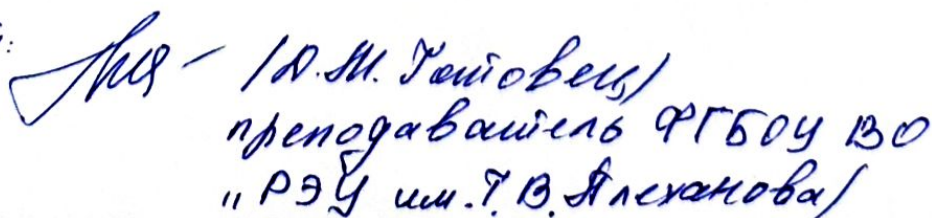 /Д.М. Готовец/
преподаватель ФГБОУ ВО
„РЭУ им. Г.В. Плеханова/